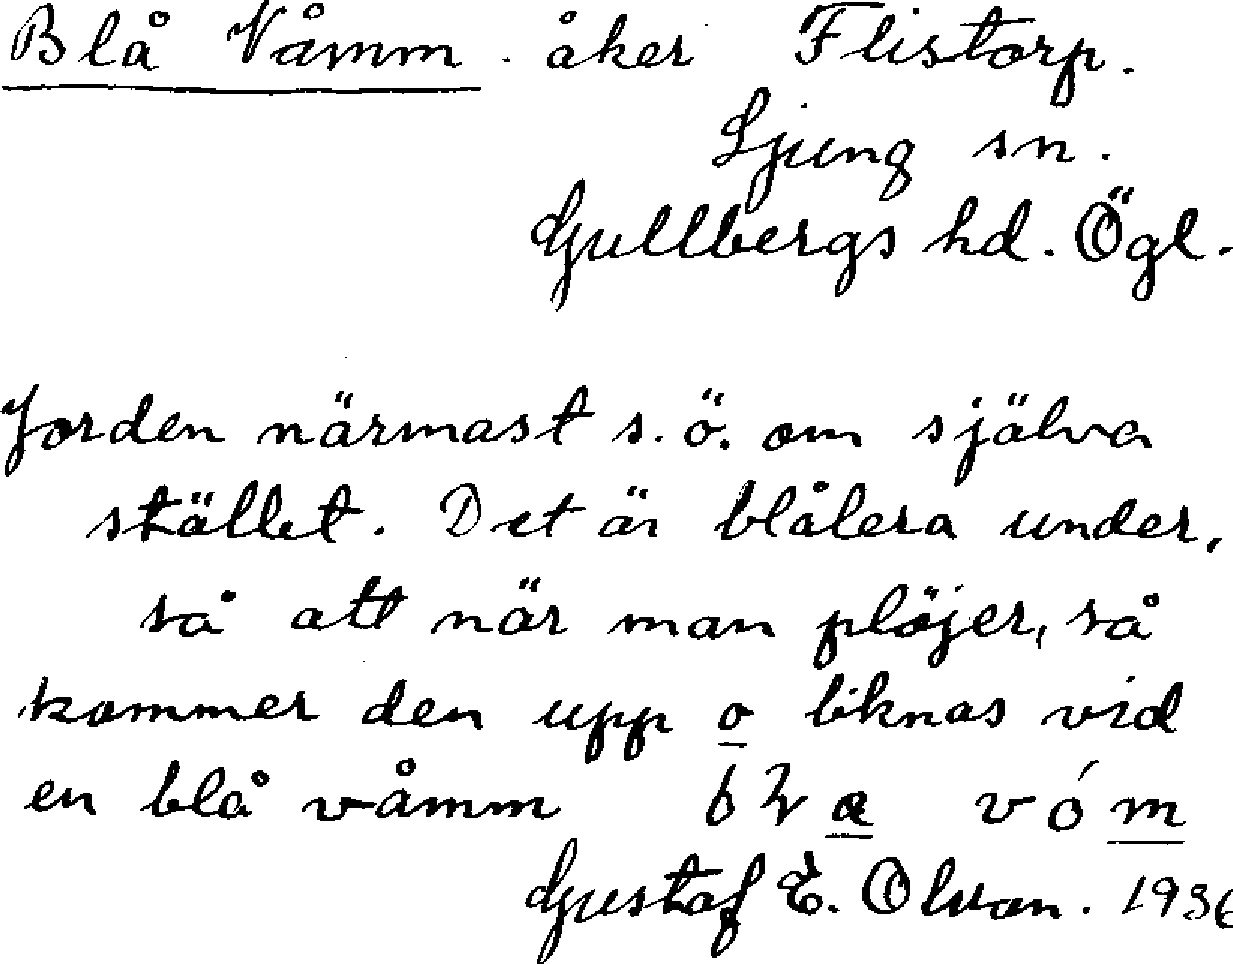 Blå Våmm. åker Flistorp.
Ljung sn.
Gullbergs hd. Ögl.
Jorden närmast s.ö. om själva
stället. Det är blålera under,
så att när man plöjer, så
kommer den upp o liknas vid
en blå våmm vóm
Gustaf E. Olson. 1936